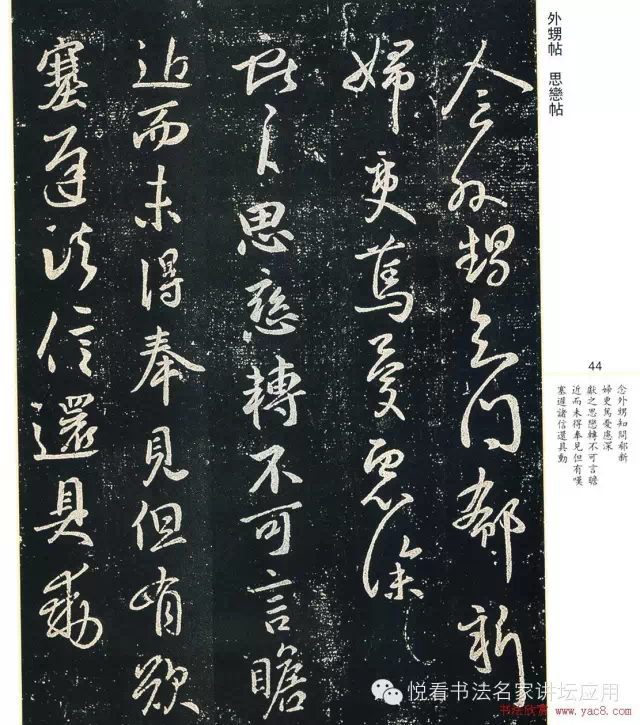 外甥帖 思戀帖
44
念外甥知問郗新
婦更篤憂慮深
獻之思戀轉不可言瞻
近而未得奉見但有嘆
塞遲諸信還具動
念外甥知問郗新
婦更篤憂慮深
獻之思戀轉不可言瞻
近而未得奉見但有歎
塞遲諸信還具動
悦看书法名家讲坛应用
书法欣赏 www.yac8.com